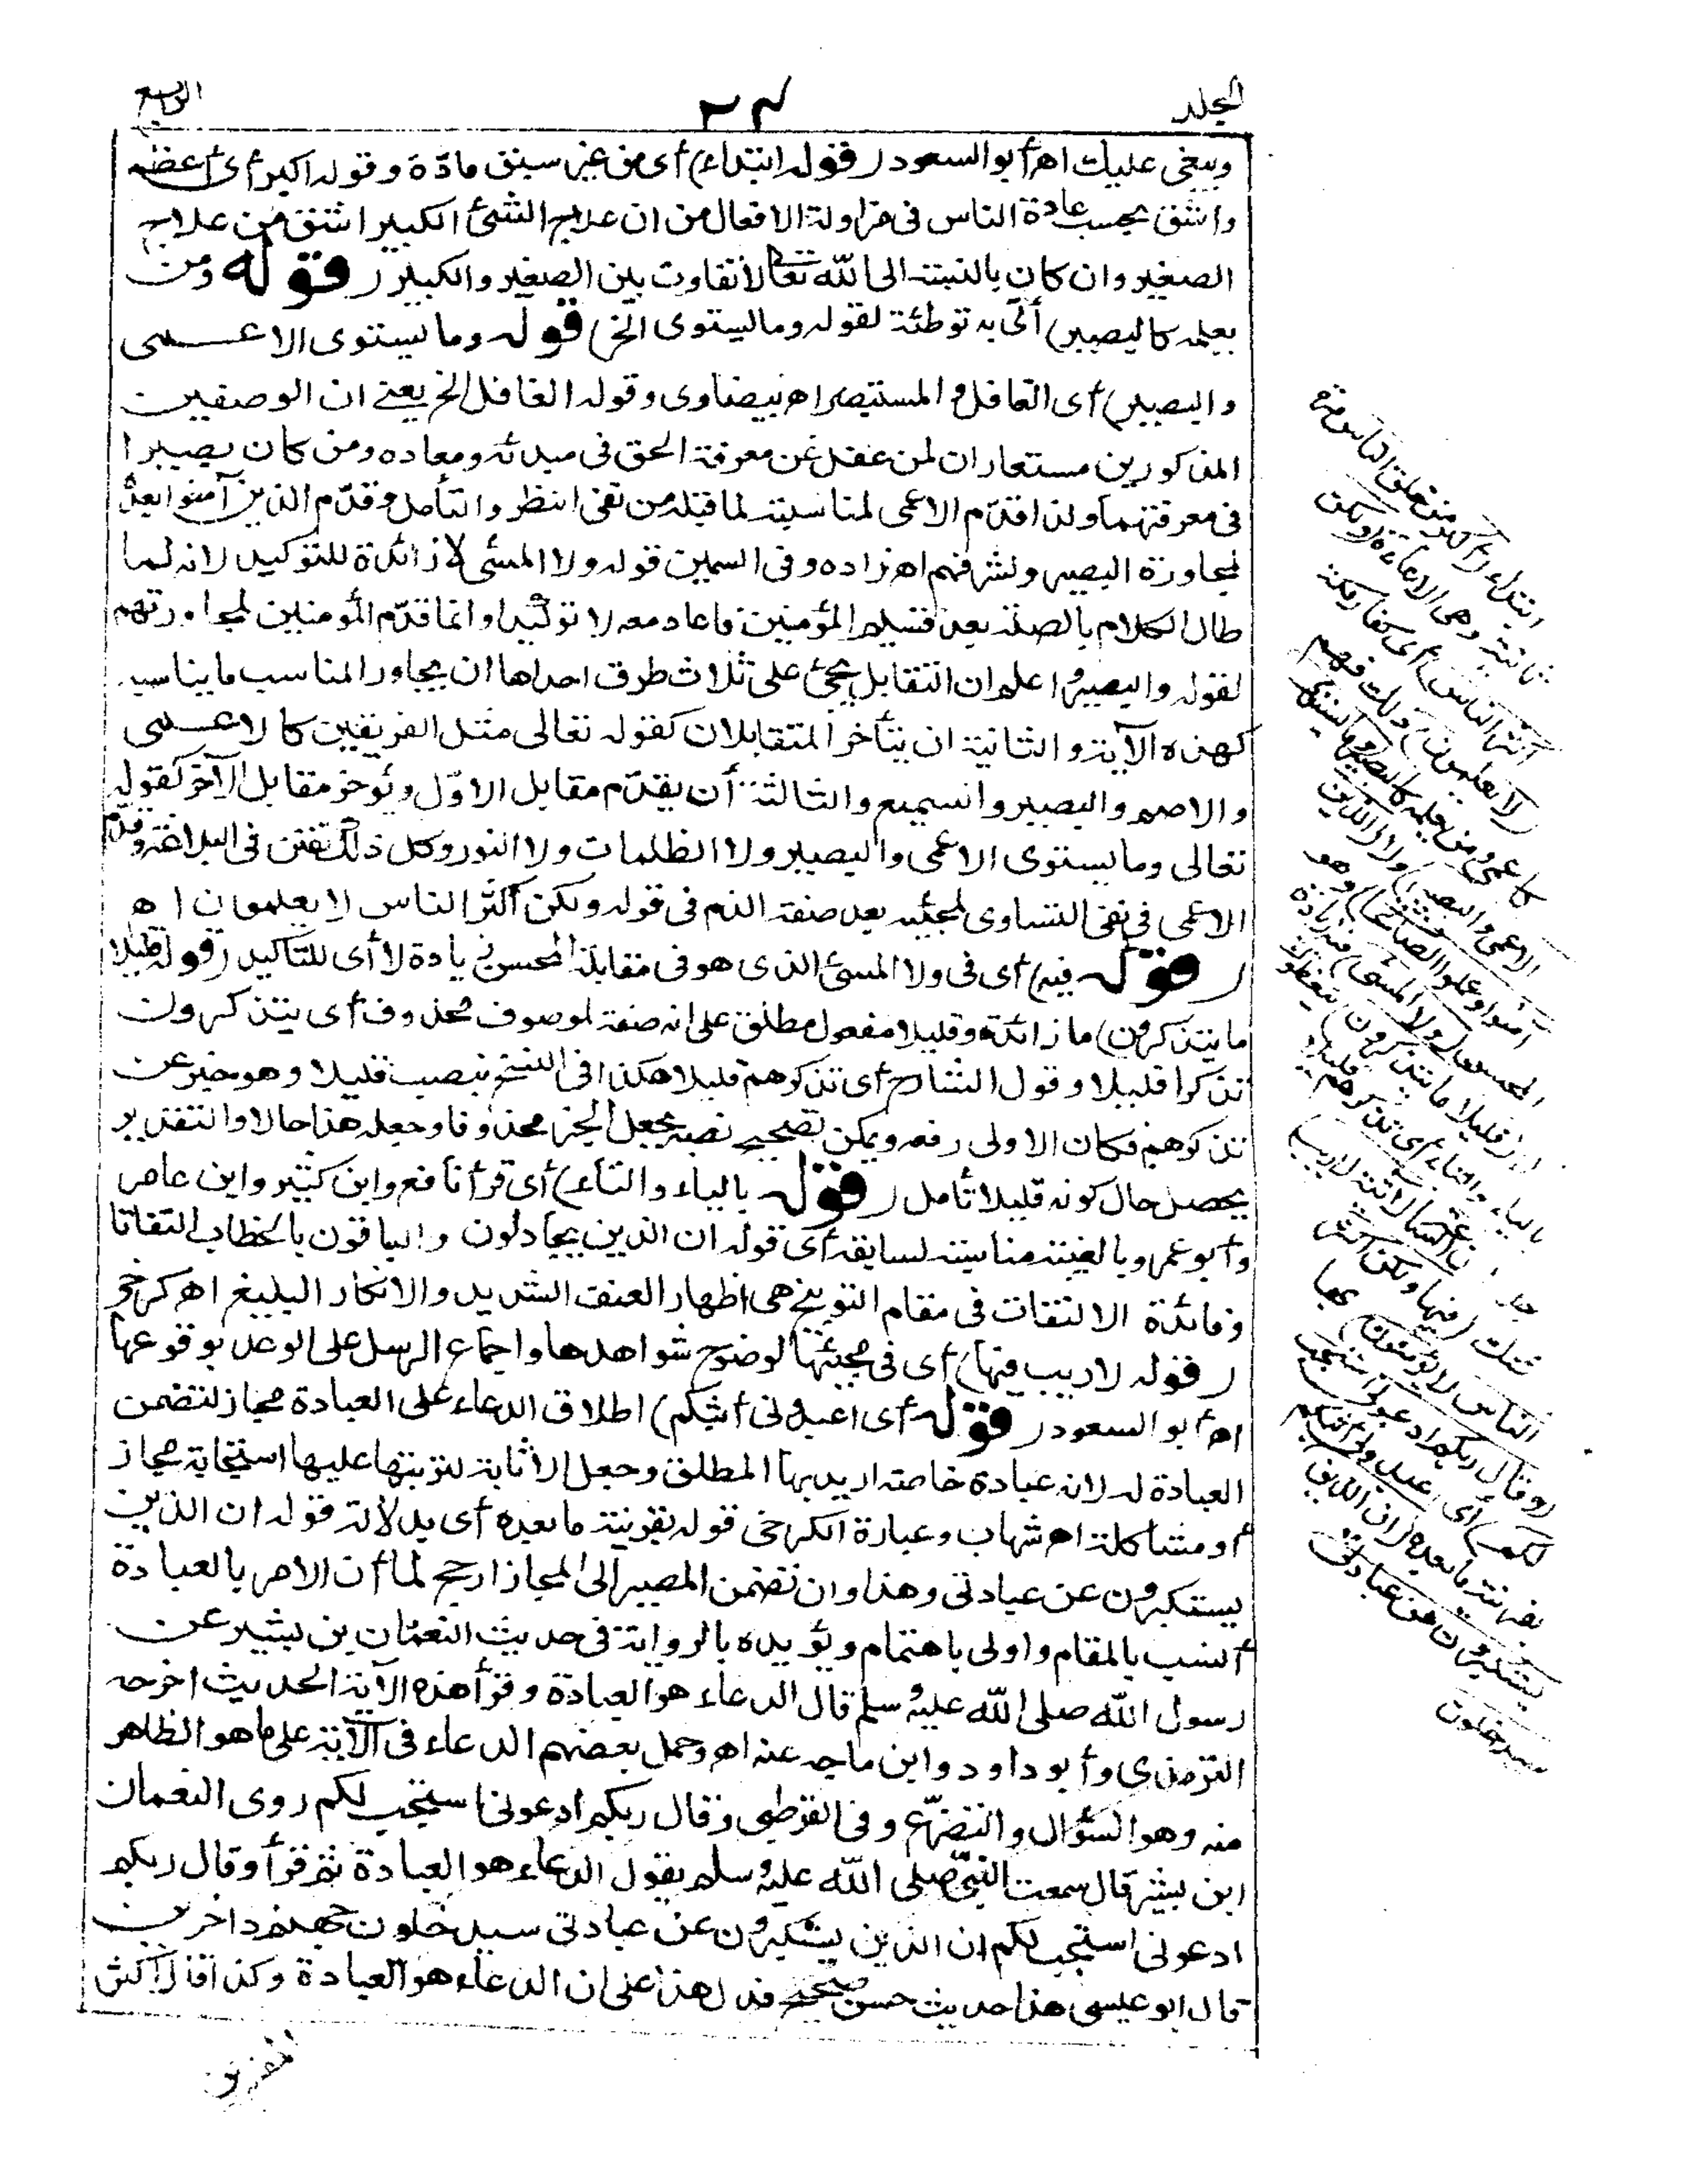 المجلد
٢٤
الرابع
ويبغى عليك اه أبو السعود (قوله ابتداء) أى من غير سبق مادّة وقوله اكبر أى أعظم
وأشق بحسب عادة الناس فى مزاولة الافعال من ان علاج الشئ الكبير اشق من علاج
الصغير وان كان بالنسبة الى الله تعالى لا تفاوت بين الصغير والكبير (قوله ومن
يعلمه كالبصير) أتى به توطئة لقوله وما يستوى الخ (قوله وما يستوى الاعـمى
والبصير) أى الغافل والمستبصر اه بيضاوى وقوله الغافل الخ يعنى ان الوصفين
المذكورين مستعاران لمن غفل عن معرفة الحق فى مبدئه ومعاده ومن كان بصيرا
فى معرفتهما ولذا قدّم الاعمى لمناسبته لما قبله من نفى النظر والتأمل وقدّم الذين آمنوا بعد
لمجاورة البصير ولشرفهم اه زاده وفى السمين قوله ولا المسئ لا زائدة للتوكيد لانه لما
طال الكلام بالصلة بعد قسيم المؤمنين فاعاد معه لا توكيدا وانما قدّم المؤمنين لمجاورتهم
لقوله والبصير واعلم ان التقابل يجئ على ثلاث طرق احداها ان يجاور المناسب ما يناسبه
كهذه الآية والثانية ان يتأخر المتقابلان كقوله تعالى مثل الفريقين كالاعـمى
والاصم والبصير والسميع والثالثة أن يقدّم مقابل الاوّل ويؤخر مقابل الآخر كقوله
تعالى وما يستوى الاعمى والبصير ولا الظلمات ولا النور وكل ذلك تفنن فى البلاغة وقدّم
الاعمى فى نفى التساوى لمجيئه بعد صفة الذم فى قوله ولكن أكثر الناس لا يعلمون اه
(قوله فيه) أى فى ولا المسئ الذى هو فى مقابلة المحسن زيادة لا أى للتاكيد (قوله قليلا
ما يتذكرون) ما زائدة وقليلا مفعول مطلق على انه صفة لموصوف محذوف أى يتذكرون
تذكرا قليلا وقول الشارح أى تذكرهم قليلا هكذا فى النسخ بنصب قليلا وهو خبر عن
تذكرهم فكان الاولى رفعه ويمكن تصحيح نصبه بجعل الخبر محذوفا وجعله هذا حالا والتقدير
يحصل حال كونه قليلا تأمل (قوله بالياء والتاء) أى قرأ نافع وابن كثير وابن عامر
وأبو عمرو بالغيبة مناسبة لسابقه أى قوله ان الذين يجادلون والباقون بالخطاب التفاتا
وفائدة الالتفات فى مقام التوبيخ هى اظهار العنف الشديد والانكار البليغ اه كرخى
(قوله لا ريب فيها) أى فى مجيئها لوضوح شواهدها واجماع الرسل على الوعد بوقوعها
اه أبو السعود (قوله أى اعبدونى أثبكم) اطلاق الدعاء على العبادة مجاز لتضمن
العبادة له لانه عبادة خاصة اريد بها المطلق وجعل الاثابة لترتبها عليها استجابة مجاز
أو مشاكلة اه شهاب وعبارة الكرخى قوله بقرينة ما بعده أى بدلالة قوله ان الذين
يستكبرون عن عبادتى وهذا وان تضمن المصير الى المجاز ارجح لما أن الامر بالعبادة
أنسب بالمقام واولى باهتمام ويؤيده بالرواية فى حديث النعمان بن بشير عن
رسول الله صلى الله عليه وسلم قال الدعاء هو العبادة وقرأ هذه الآية الحديث اخرجه
الترمذى وأبو داود وابن ماجه عنه اه وحمل بعضهم الدعاء فى الآية على ما هو الظاهر
منه وهو السؤال والتضرّع وفى القرطبى وقال ربكم ادعونى استجب لكم روى النعمان
ابن بشير قال سمعت النبى صلى الله عليه وسلم يقول الدعاء هو العبادة ثم قرأ وقال ربكم
ادعونى استجب لكم ان الذين يستكبرون عن عبادتى سيدخلون جهنم داخرين
قال ابو عيسى هذا حديث حسن صحيح فدل هذا على ان الدعاء هو العبادة وكذا قال اكثر
ابتداء (أكبر من خلق الناس) مرة
ثانية وهى الاعادة (ولكن
أكثر الناس) أى كفار مكة
(لا يعلمون) ذلك فهم
كالاعمى ومن يعلمه كالبصير (وما يستوى
الاعمى والبصير و) لا (الذين
آمنوا وعملوا الصالحات) وهو
المحسن (ولا المسئ) فيه زيادة
لا (قليلا ما يتذكرون) يتعظون
بالياء والتاء أى تذكرهم قليلا
(ان الساعة لآتية لا ريب)
شك (فيها ولكن اكثر
الناس لا يؤمنون) بها
(وقال ربكم ادعونى استجب
لكم) أى اعبدونى أثبكم
بقرينة ما بعده (ان الذين
يستكبرون عن عبادتى
سيدخلون